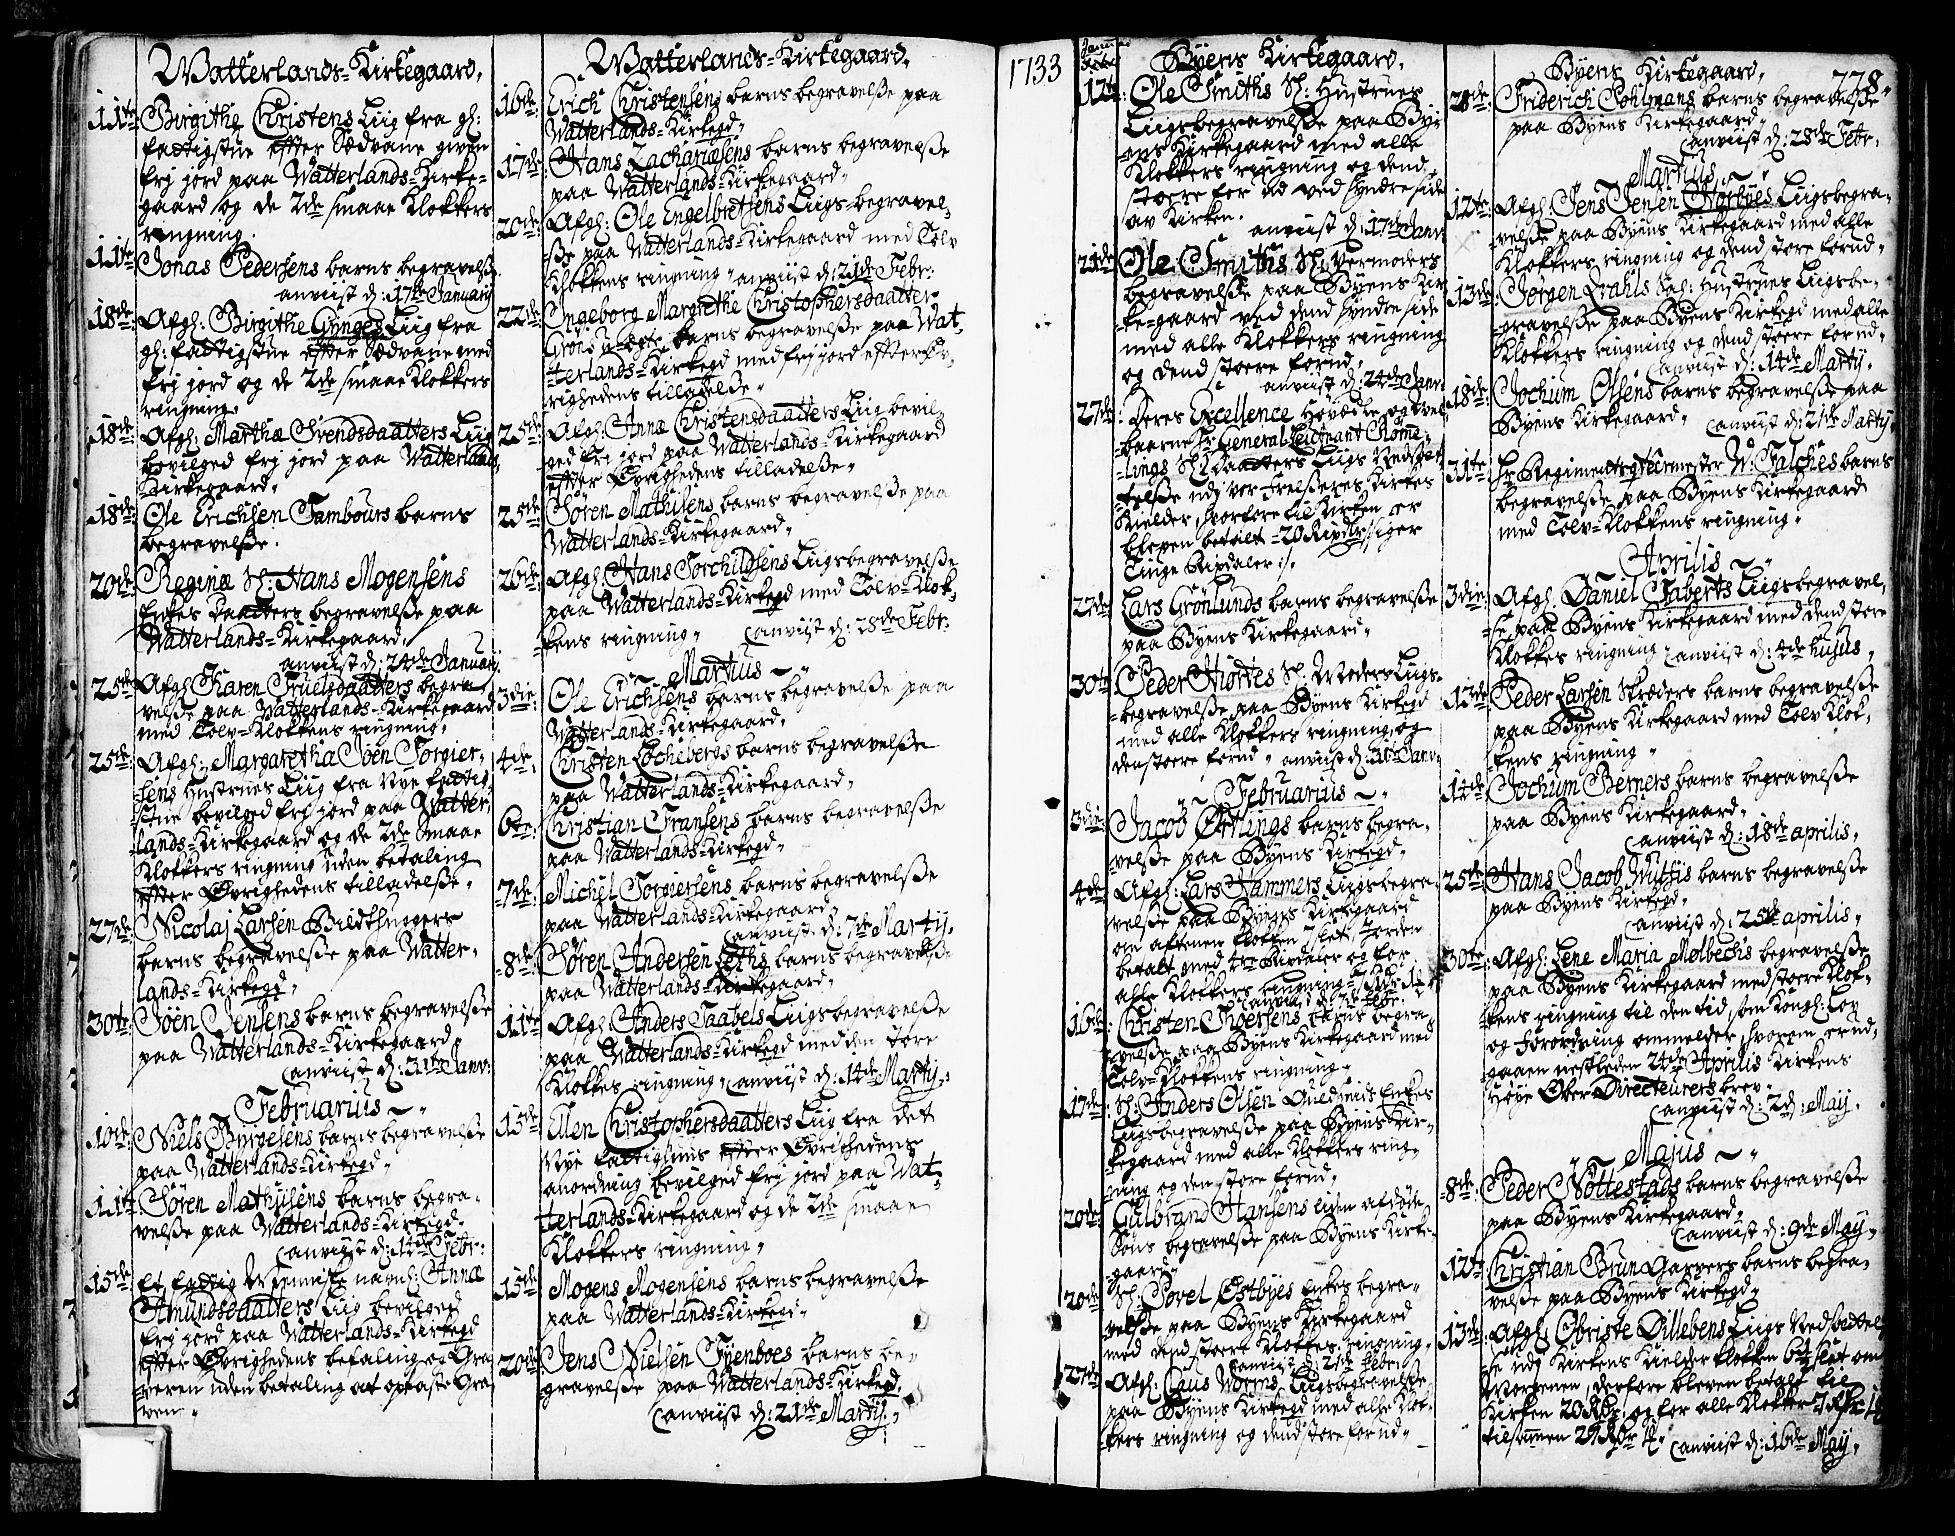 Watterlands-Kirkegaard,
11te: Birgithe Christens Liig fra gl:
fattigstue effter Sædvane given
frj jord paa Watterlands-Kirke-
gaard og de 2de smaae Klokkers
ringning.
11te: Jonas Pedersens barns begravelsse
anviist d: 17de January
18de: Afgl: Birgithe Gynges Liig fra
gl: fattigstue effter Sædvane med
frj jord og de 2de smaae Klokkers
ringning.
18de: Afgl: Marthæ Svendsdaatters Liig
bevilged frj jord paa Watterlands
Kirkegaard,
18de: Ole Erichsen Tambours barns
begravelsse.
20de: Reginæ Sl: Hans Mogensens
Enkes Daatters begravelsse paa
Watterlands-Kirkegaard,
anviist d: 24de Januari
25de: Afgl: Karen Truelsdaatters begra-
velsse paa Watterlands-Kirkegaard
med Tolv-Klokkens ringning,
25de: Afgl: Margaretha Joen Torgier-
sens Hustrues Liig fra Nye fattig-
stue bevilged frj jord paa Watter-
lands-Kirkegaard og de 2de smaae
Klokkers ringning uden betaling
effter Øvrighedens tilladelsse,
27de: Nicolaj Larsen Bildthuggers
barns begravelsse paa Watter-
lands-Kirkegd,
30te: Joen Jensens barns begravelsse
paa Watterlands-Kirkegaard
anviist d: 31te Janv:
Februarius
10de: Niels Børgesens barns begravelsse
paa Watterlands-Kirkegd,
11te: Søren Mathisens barns begra-
velsse paa Watterlands-Kirkegd,
anviist d: 14de Febr:
15de: Et fattig Menniske navnl: Annæ
Amundsdaatters Liig bevilged
frj jord paa Watterlands-Kirkegd
effter Øvrighedens befaling og Gra-
veren uden betaling at opkaste Gra-
ven,
Watterlands-Kirkegaard,
16de: Erich Christensens barns begravelsse paa
Watterlands-Kirkegd,
17de: Hans Zachariæsens barns begravelsse
paa Watterlands-Kirkegaard,
20de: Afgl: Ole Engelbretsens Liigs-begravel-
sse paa Watterlands-Kirkegaard med Tolv
Klokkens ringning, anviist d: 21de Febr:
22de: Ingeborg Margrethe Christophersdaatter
barns begravelsse paa Wat-
terlands-Kirkegd med frj jord effter Øv-
righedens tilladelsse,
25de: Afgl: Annæ Christensdaatters Liig bevil-
ged frj jord paa Watterlands-Kirkegaard
effter Øvrighedens tilladelsse,
25de: Søren Mathisens barns begravelsse paa
Watterlands-Kirkegaard,
26de: Afgl: Hans Torchildsens Liigsbegravelsse
paa Watterlands-Kirkegd med Tolv-Klok-
kens ringning, anviist d: 28de Febr:
Martius
3die: Ole Erichsens barns begravelsse paa
Watterlands-Kirkegaard,
4de: Christen Locheberds barns begravelsse
paa Watterlands-Kirkegaard,
6te: Christian Fransens barns begravelsse
paa Watterlands-Kirkegd,
7de: Michel Torgiersens barns begravelsse
paa Watterlands-Kirkegaard
anviist d: 7de Martij,
8de: Søren Andersen Leths barns begravelsse
paa Watterlands-Kirkegaard,
11te: Afgl: Anders Taabels Liigsbegravelsse
paa Watterlands-Kirkegd med den store
Klokkes ringning, anviist d: 14de Martij,
15de: Elen Christophersdaatters Liig fra dett
Nye fattighuus effter Øvrighedens
anordning bevilged frj jord paa Wat-
terlands-Kirkegaard og de 2de smaae
Klokkers ringning,
15de: Mogens Mogensens barns begravelsse
paa Watterlands-Kirkegd,
20de: Jens Nielsen Fyenboes barns be-
gravelsse paa Watterlands-Kirkegd,
anviist d: 21de Martij,
1733
Byens Kirkegaard,
12te: Ole Smiths Sl: Hustrues
Liigsbegravelsse paa By-
ens Kirkegaard med alle
Klokkers ringning og dend
stoere for ud ved syndre side
av Kirken.
anviist d: 17de Janv:
23de: Ole Smiths Sl: Vermoders
begravelsse paa Byens Kir-
ke-gaard ved dend syndre side
med alle Klokkers ringning
og dend stoere forud,
anviist d: 24de Janv:
27de: Deres Excellence Høyædle og Vel-
baarne Hr General Leutnant Rome-
lings Sl: Daatters Liigs Nedset-
telsse udj vor frelsseres Kirkes
Kielder, hvorfore til Kirken er
bleven betalt 20 Rixdlr siger
Tiuge Rixdaler :/.
27de: Lars Grønlunds barns begravelsse
paa Byens Kirkegaard,
30te: Peder Hiortes Sl: Moders Liigs-
begravelsse paa Byens Kirkegd
med alle Klokkers ringning, og
den stoere forud, anviist d: 31te Janv:
Februarius
3die: Jacob Ørtlings barns begra-
velsse paa Byens Kirkegd,
4de: Afgl: Lars Hammers Liigsbegra-
velsse paa Byens Kirkegaard
om aftenen klokken Jorden
betalt med 4re Rixdaler og for
alle Klokkers ringning
anviist d: 7de Febr:
16de: Christen Thoersens barns begra-
velsse paa Byens Kirkegaard med
Tolv-Klokkens ringning,
17de: Sl: Anders Olsen Enkes
Liigsbegravelsse paa Byens Kir-
kegaard med alle Klokkers ring-
ning og den store forud,
20de: Gulbrand Hansens liden afdøde
Søns begravelsse paa Byens Kirke-
gaard,
20de: Sl: Povel Østbyes Enkes begra-
velsse paa Byens Kirkegaard
med dend stoere Klokkes ringning,
anviist d: 21de Febr:
27de: Afgl: Claus Worms Liigsbegravelsse
paa Byens Kirkegd med alle Klok-
kers ringning og dend store forud,
Byens Kirkegaard, 228
28de: Friderich Pohlmans barns begravelsse
paa Byens Kirkegaard
anviist d: 28de Febr.
Martius
12te: Afgl: Jens Jensen Norbyes Liigsbegra-
velsse paa Byens Kirkegaard med alle
Klokkers ringning og dend store forud,
13de: Jørgen Krahls Sal: Hustrues Liigsbe-
gravelsse paa Byens Kirkegd med alle
Klokkers ringning og dend stoere forud,
anviist d: 14de Martij.
18de: Jochum Olsens barns begravelsse paa
Byens Kirkegaard, anviist d: 21de Martij,
31te: Hr Regimentsqvartermester W: Falches barns
begravelsse paa Byens Kirkegaard
med Tolv-Klokkens ringning,
Aprilis
3die: Afgl: Daniel Taberts Liigsbegravel-
sse paa Byens Kirkegaard med dend store
Klokkes ringning, anviist d: 4de hujus,
13de: Peder Larsen Skræders barns begravelsse
paa Byens Kirkegaard med Tolv Klok-
kens ringning,
14de: Jochum Berners barns begravelsse
paa Byens Kirkegaard,
anviist d: 18de aprilis,
25de: Hans Jacob Wulffs barns begravelsse
paa Byens Kirkegd,
anviist d: 25de aprilis,
30te: Afgl: Lene Maria Molbechs begravelsse
paa Byens Kirkegaard med stoere Klok-
kens ringning til den tid, som Kongl: Lov
og forordning ommelder, hvorom
24de Aprilis Kirkens
Høye Over Directeurers brev,
anviist d: 2d: May.
Majus
8de: Peder Nøttestads barns begravelsse
paa Byens Kirkegaard,
anviist d: 9de May,
12te: Christian Brun Garvers barns begra-
velsse paa Byens Kirkegd,
13de: Afgl: Christe Dillebens Liigs Nedsættel-
se udj Kirkens Kielder klokken 6 slet om
Morgenen, derfore bleven betalt til
Kirken 20 Rdr, og for alle Klokker
tilsamen anviist d: 16de May,